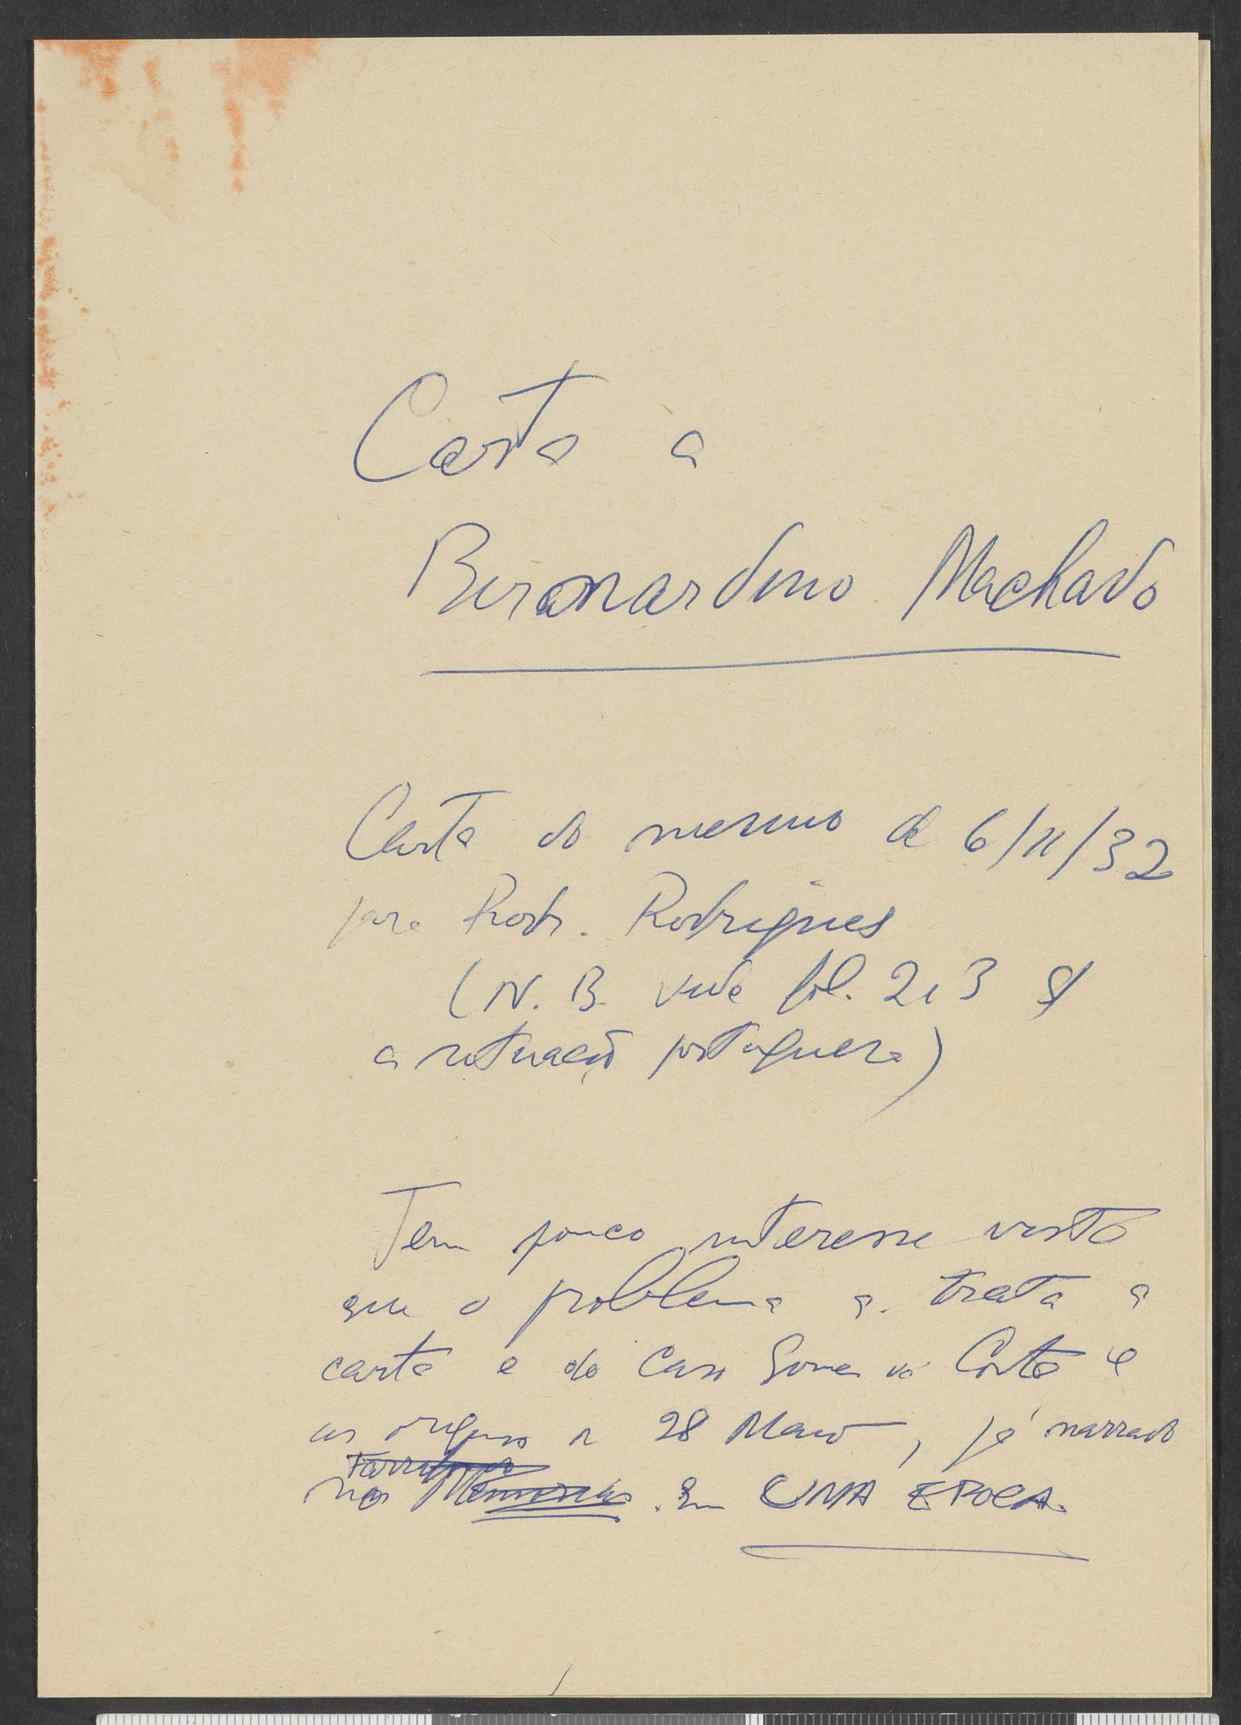 Carta a
Bernardino Machado
Carta do mesmo de 6/11/32
para Rodr. Rodrigues
(N. B. vide fol. 2 e 3 s/
a situação portuguesa)
Tem pouco interesse visto
que o problema q. trata a
carta é do caso Gomes da Costa e
as origens do 28 Maio, já narrado
nas Memórias. Em UMA EPOCA.